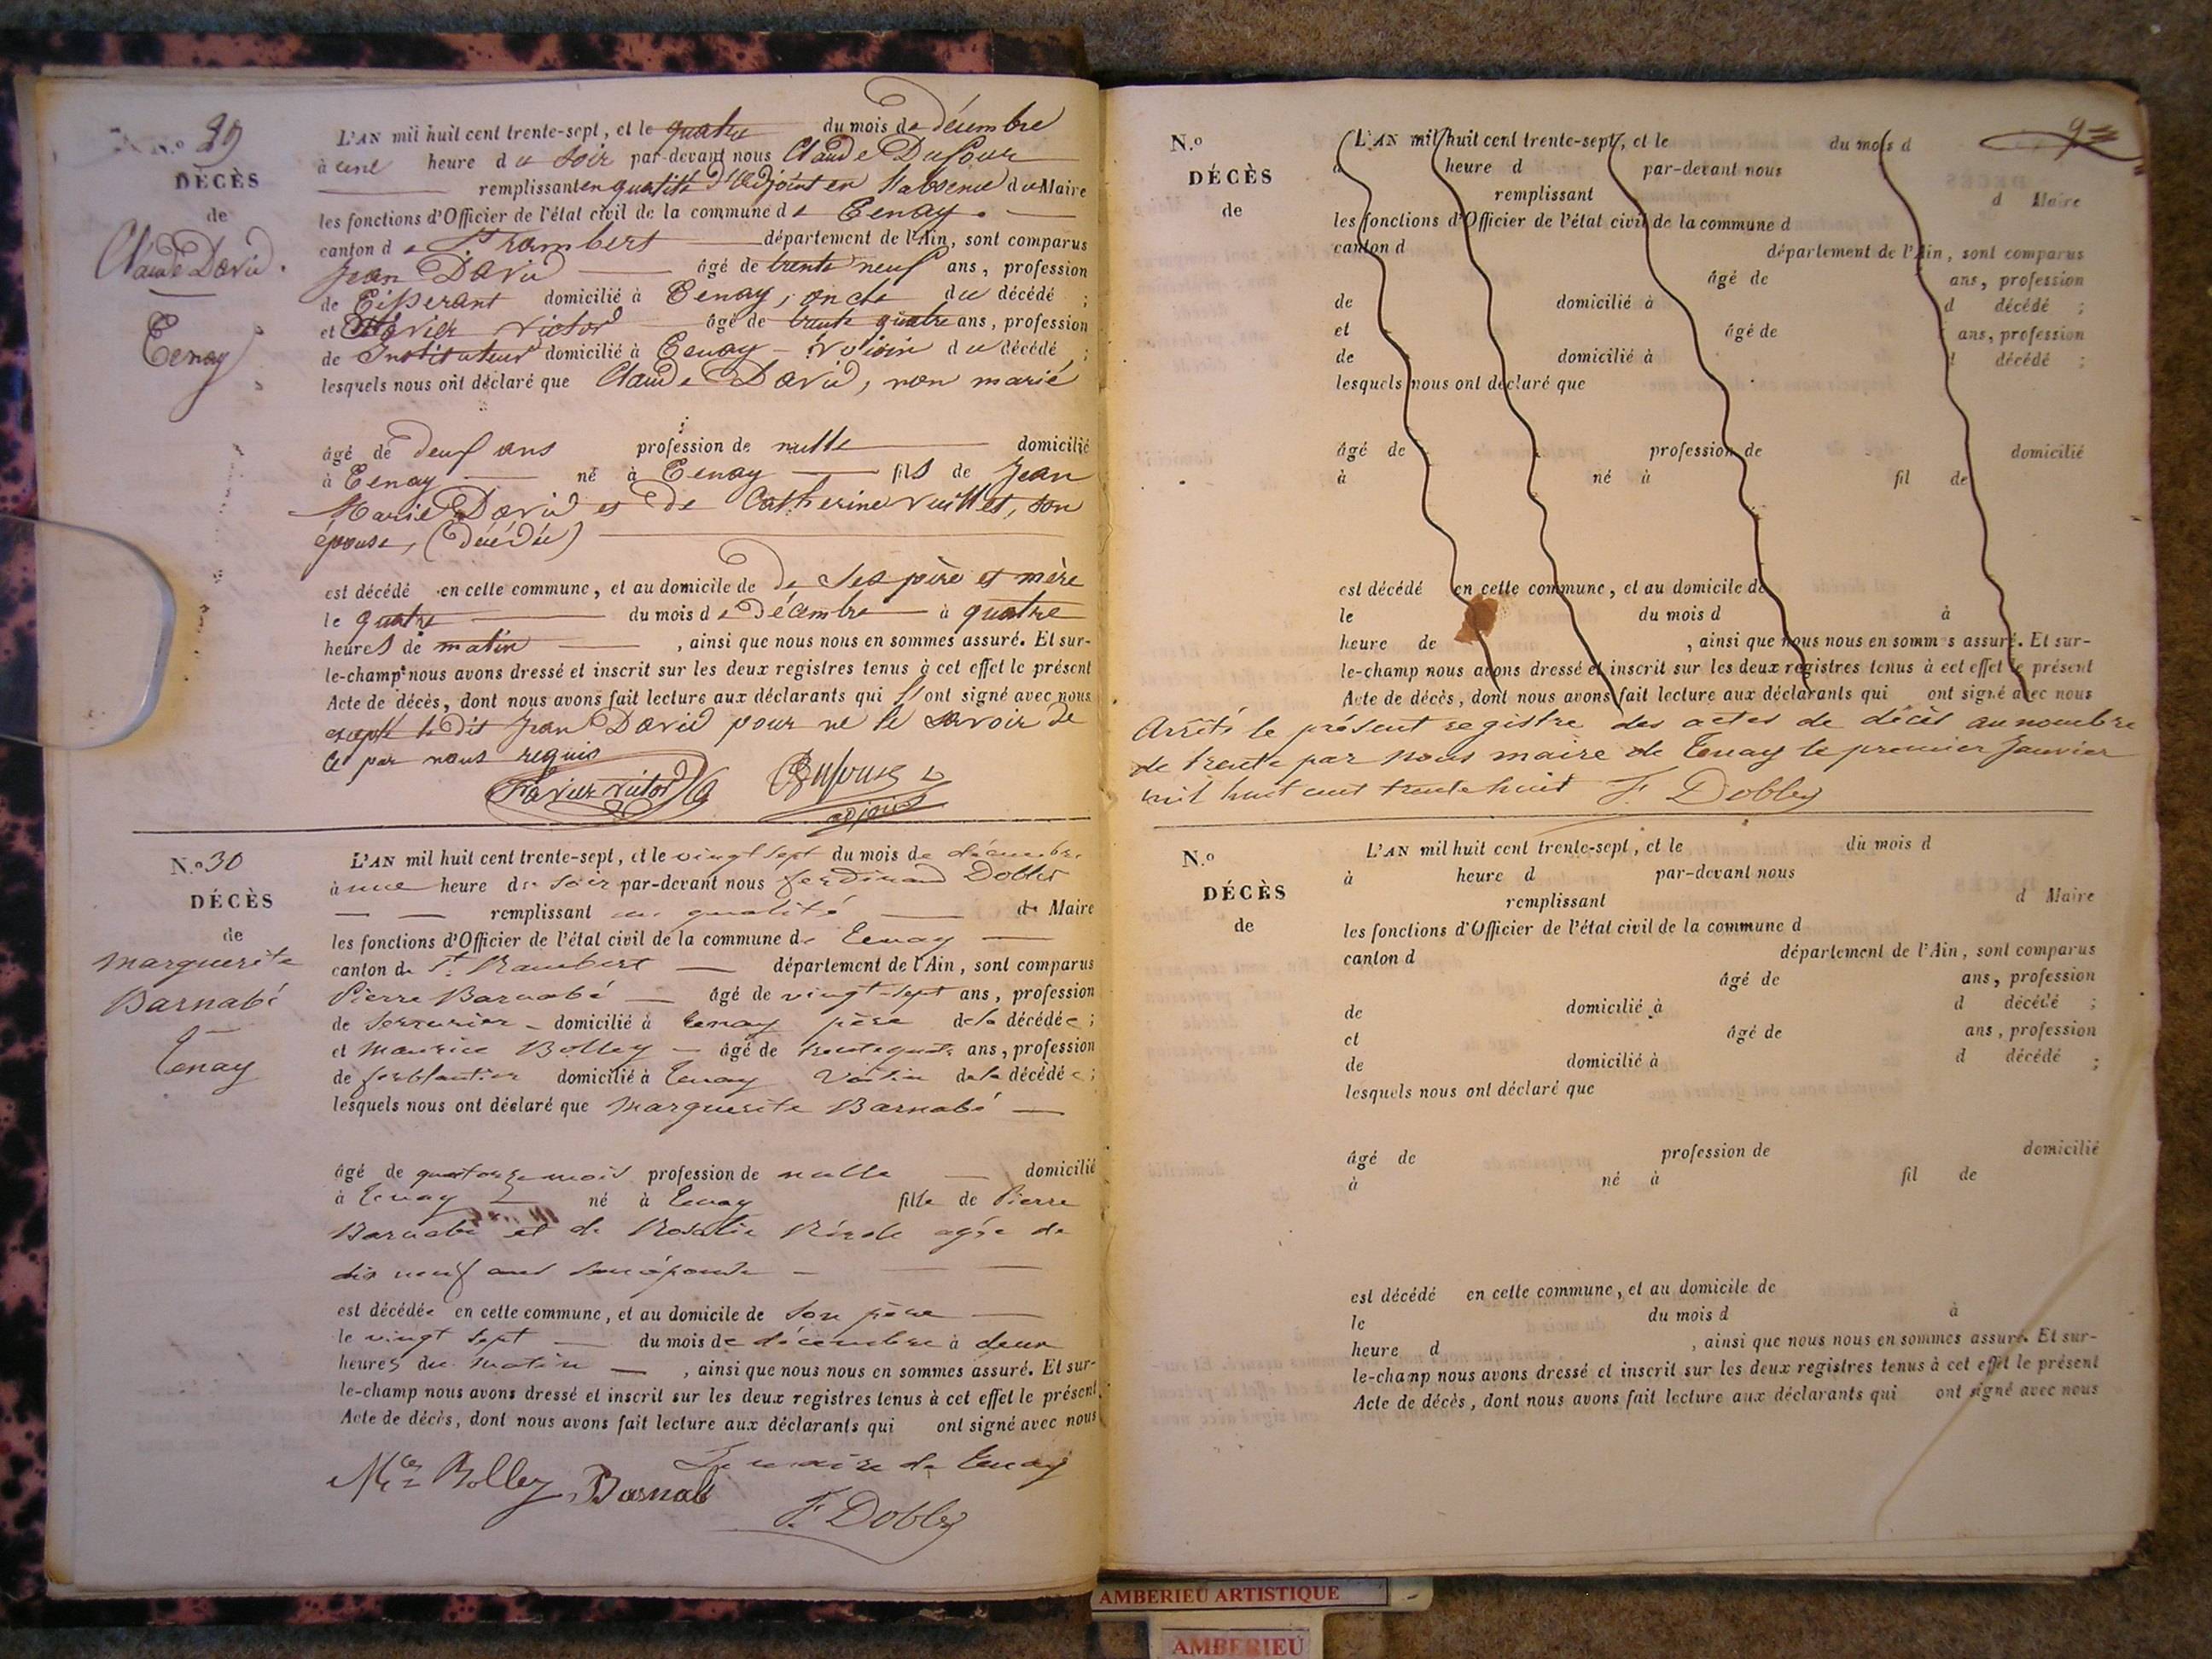 N.o 29
DÉCÈS
de
Claude David.
Tenay
L'AN mil huit cent trente-sept, et le quatre du mois de décembre
à une heure du soir par-devant nous Claude Dufour
remplissant en qualité d'adjoint en l'absence du Maire
les fonctions d'Officier de l'état civil de la commune de Tenay.
canton de St rambert département de l'Ain, sont comparus
Jean David âgé de trente neuf ans, profession
de Tisserant domicilié à Tenay, oncle du décédé ;
et Xavier Victor âgé de trente quatre ans, profession
de Instituteur domicilié à Tenay - voisin du décédé ;
lesquels nous ont déclaré que Claude David, non marié
âgé de deux ans profession de nulle domicilié
à Tenay né à Tenay fils de Jean
Marie David et de Catherine Vuillet, son
épouse, (décédée)
est décédé en cette commune, et au domicile de de ses père et mère
le quatre du mois de décembre à quatre
heures de matin , ainsi que nous nous en sommes assuré. Et sur-
le-champ nous avons dressé et inscrit sur les deux registres tenus à cet effet le présent
Acte de décès, dont nous avons fait lecture aux déclarants qui ont signé avec nous
excepté le dit Jean David pour ne le savoir de
ce par nous requis
Xavier Victor Dufour
adjoint
N.o 30
DÉCÈS
de
Marguerite
Barnabé
Tenay
L'AN mil huit cent trente-sept, et le vingt sept du mois de décembre
à une heure du soir par-devant nous ferdinand Dobler
remplissant en qualité de Maire
les fonctions d'Officier de l'état civil de la commune de Tenay
canton de St. Rambert département de l'Ain, sont comparus
Pierre Barnabé âgé de vingt-sept ans, profession
de serrurier domicilié à Tenay père de la décédée ;
et Maurice Bolley âgé de trente quatre ans, profession
de ferblantier domicilié à Tenay voisin de la décédée ;
lesquels nous ont déclaré que Marguerite Barnabé
âgé de quatorze mois profession de nulle domicilié
à Tenay né à Tenay fille de Pierre
Barnabé et de Rosalie agée de
dix neuf ans son épouse
est décédée en cette commune, et au domicile de son père
le vingt sept du mois de décembre à deux
heures du matin , ainsi que nous nous en sommes assuré. Et sur-
le-champ nous avons dressé et inscrit sur les deux registres tenus à cet effet le présent
Acte de décès, dont nous avons fait lecture aux déclarants qui ont signé avec nous
Le maire de Tenay
Mce Bolley Barnabé
F. Dobler
N.o
DÉCÈS
de
L'AN mil huit cent trente-sept, et le du mois d
à heure d par-devant nous
remplissant d Maire
les fonctions d'Officier de l'état civil de la commune d
canton d département de l'Ain, sont comparus
âgé de ans, profession
de domicilié à d décédé ;
et âgé de ans, profession
de domicilié à d décédé ;
lesquels nous ont déclaré que
âgé de profession de domicilié
à né à fil de
est décédé en cette commune, et au domicile de
le du mois d à
heure de , ainsi que nous nous en sommes assuré. Et sur-
le-champ nous avons dressé et inscrit sur les deux registres tenus à cet effet le présent
Acte de décès, dont nous avons fait lecture aux déclarants qui ont signé avec nous
Arrêté le présent registre des actes de décès au nombre
de trente par nous maire de Tenay le premier Janvier
mil huit cent trente huit F. Dobler
N.o
DÉCÈS
de
L'AN mil huit cent trente-sept, et le du mois d
à heure d par-devant nous
remplissant d Maire
les fonctions d'Officier de l'état civil de la commune d
canton d département de l'Ain, sont comparus
âgé de ans, profession
de domicilié à d décédé ;
et âgé de ans, profession
de domicilié à d décédé ;
lesquels nous ont déclaré que
âgé de profession de domicilié
à né à fil de
est décédé en cette commune, et au domicile de
le du mois d à
heure d , ainsi que nous nous en sommes assuré. Et sur-
le-champ nous avons dressé et inscrit sur les deux registres tenus à cet effet le présent
Acte de décès, dont nous avons fait lecture aux déclarants qui ont signé avec nous
AMBERIEU ARTISTIQUE
AMBERIEU